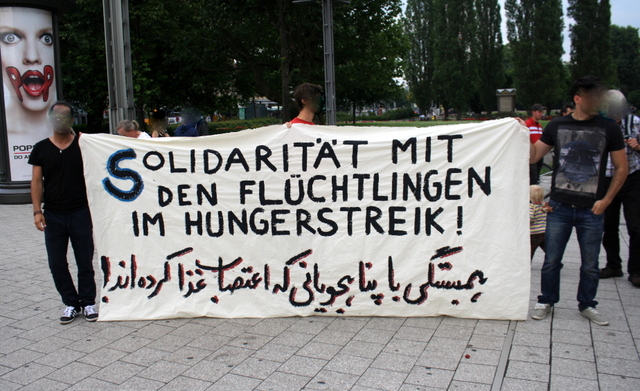 SOLIDARITÄT MIT
DEN FLÜCHTLINGEN
IM HUNGERSTREIK!
همبستگی با پناهجویانی که اعتصاب غذا کرده اند!
POP
DO A